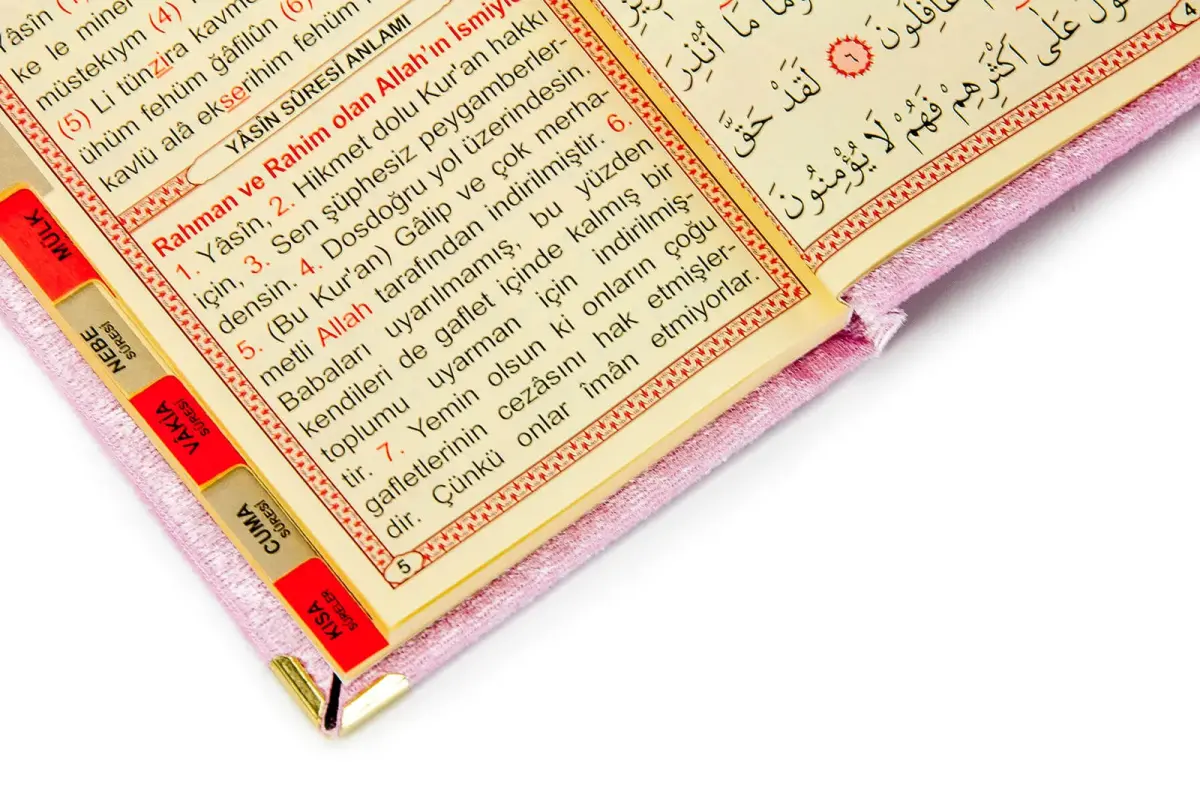 Yâsîn (1)
ke le minel
müstekıym (4)
(5) Li tünzira kavme
ühüm fehüm ğâfilûn (6)
kavlü alâ ekserihim fehüm
YÂSÎN SÛRESİ ANLAMI
Rahman ve Rahim olan Allah'ın İsmiyle
1. Yâsîn, 2. Hikmet dolu Kur'an hakkı
için, 3. Sen şüphesiz peygamberler-
densin. 4. Dosdoğru yol üzerindesin.
5. (Bu Kur'an) Gâlip ve çok merha-
metli Allah tarafından indirilmiştir. 6.
Babaları uyarılmamış, bu yüzden
kendileri de gaflet içinde kalmış bir
toplumu uyarman için indirilmiş-
tir. 7. Yemin olsun ki onların çoğu
gafletlerinin cezâsını hak etmişler-
dir. Çünkü onlar îmân etmiyorlar.
5
MÜLK
NEBE
SÛRESİ
VÂKİA
SÛRESİ
CUMA
SÛRESİ
KISA
SÛRELER
مَا أُنْذِرَ
غَافِلُونَ ٦ لَقَدْ حَقَّ
عَلَى أَكْثَرِهِمْ فَهُمْ لَا يُؤْمِنُونَ
4